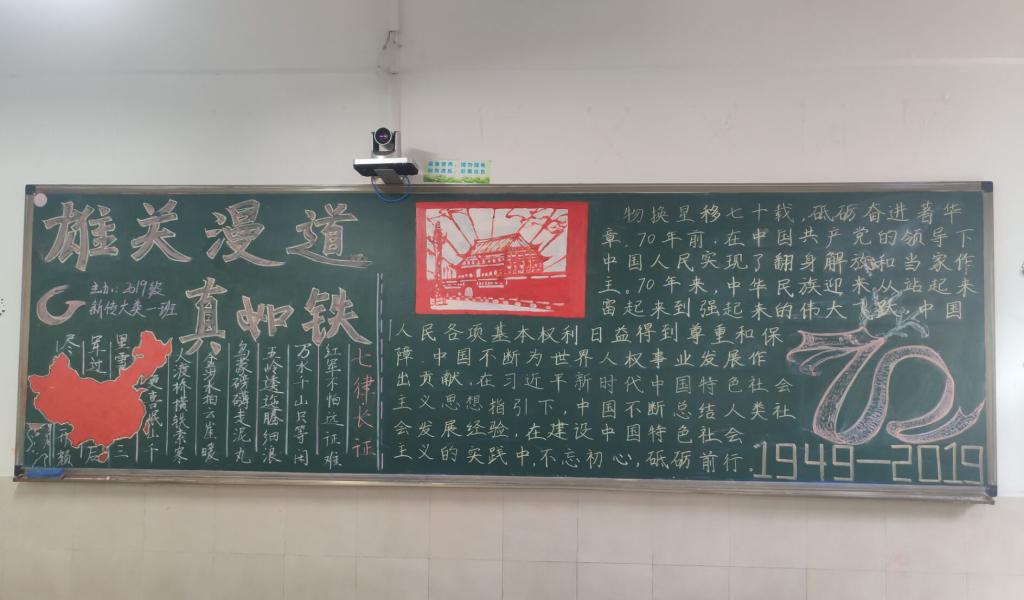 雄关漫道
真如铁
主办:2019级
新传大类一班
七律长征
红军不怕远征难
万水千山只等闲
五岭逶迤腾细浪
乌蒙磅礴走泥丸
金沙水拍云崖暖
大渡桥横铁索寒
更喜岷山千
里雪三
军过后
尽开颜
物换星移七十载,砥砺奋进著华
章.70年前,在中国共产党的领导下
中国人民实现了翻身解放和当家作
主。70年来,中华民族迎来从站起来
富起来到强起来的伟大飞跃,中国
人民各项基本权利日益得到尊重和保
障.中国不断为世界人权事业发展作
出贡献,在习近平新时代中国特色社会
主义思想指引下,中国不断总结人类社
会发展经验,在建设中国特色社会
主义的实践中,不忘初心,砥砺前行.
70
1949—2019